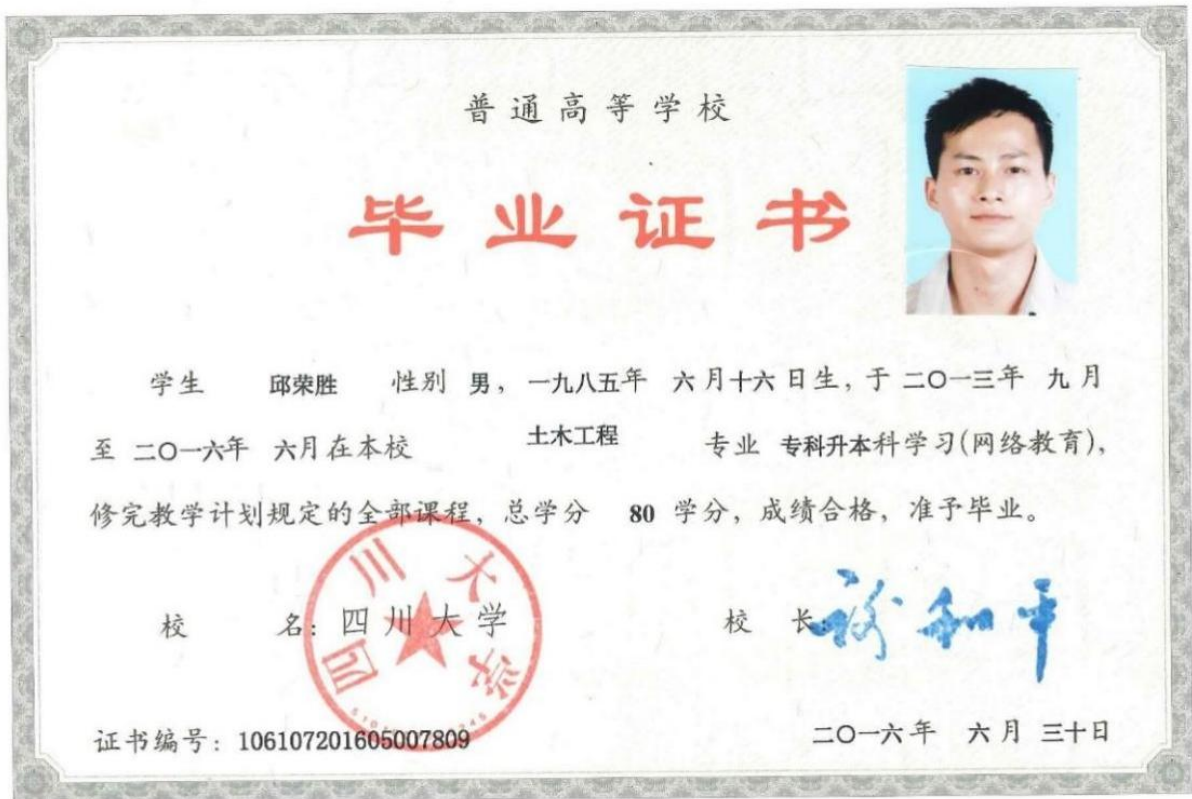 普通高等学校
毕业证书
学生 邱荣胜 性别 男, 一九八五年 六月十六日生, 于二〇一三年 九月
至 二〇一六年 六月在本校 土木工程 专业 专科升本科学习(网络教育),
修完教学计划规定的全部课程, 总学分 80 学分, 成绩合格, 准予毕业。
校 名: 四川大学
四川大学
校 长: 谢和平
证书编号: 106107201605007809
二〇一六年 六月 三十日